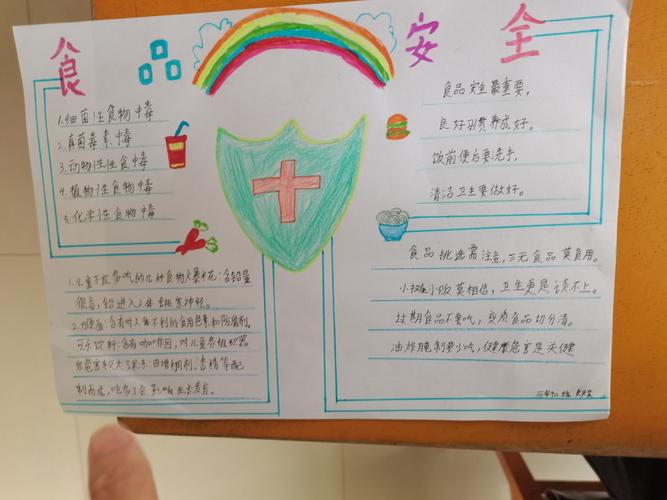 食品安全
1.细菌性食物中毒
2.真菌毒素中毒
3.动物性性食中毒
4.植物性食物中毒
5.化学性食物中毒
食品安全最重要，
良好习惯养成好。
饭前便后要洗手，
清洁卫生要做好。
食品挑选需注意，三无食品莫食用。
小摊小贩莫相信，卫生更是谈不上。
过期食品不要吃，变质食品切分清。
油炸腌制要少吃，健康危害是关键
1.儿童不宜多吃的几种食物爆米花：含铅量
很高，铅进入人体损害神经。
2.方便面：含有对人体不利的食用色素和防腐剂。
可乐饮料：含有咖啡因，对儿童各组织器
官危害较大 果冻：由增稠剂，香精等配
制而成，吃多了会影响生长发育。